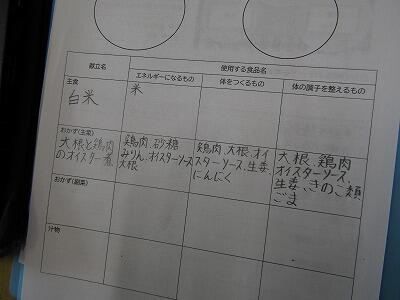 献立名
使用する食品名
エネルギーになるもの
体をつくるもの
体の調子を整えるもの
主食
白米
米
おかず(主菜)
大根と鶏肉
のオイスター煮
鶏肉、砂糖
みりん、オイスターソース
大根
鶏肉、大根、オイ
スターソース、生姜、
にんにく
大根、鶏肉
オイスターソース、
生姜、きのこ類
ごま
おかず(副菜)
汁物